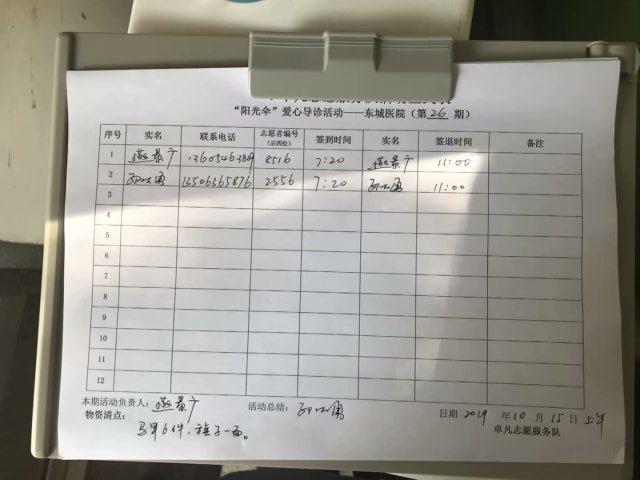 “阳光伞”爱心导诊活动——东城医院（第 26 期）
序号 实名 联系电话 志愿者编号（后四位） 签到时间 实名 签退时间 备注
1 8516 7:20 11:00
2 13506365876 2556 7:20 11:00
3
4
5
6
7
8
9
10
11
12
本期活动负责人： 活动总结： 日期 2019 年 10 月 15 日 上午
物资清点： 马甲6件，旗子一面。
卓凡志愿服务队